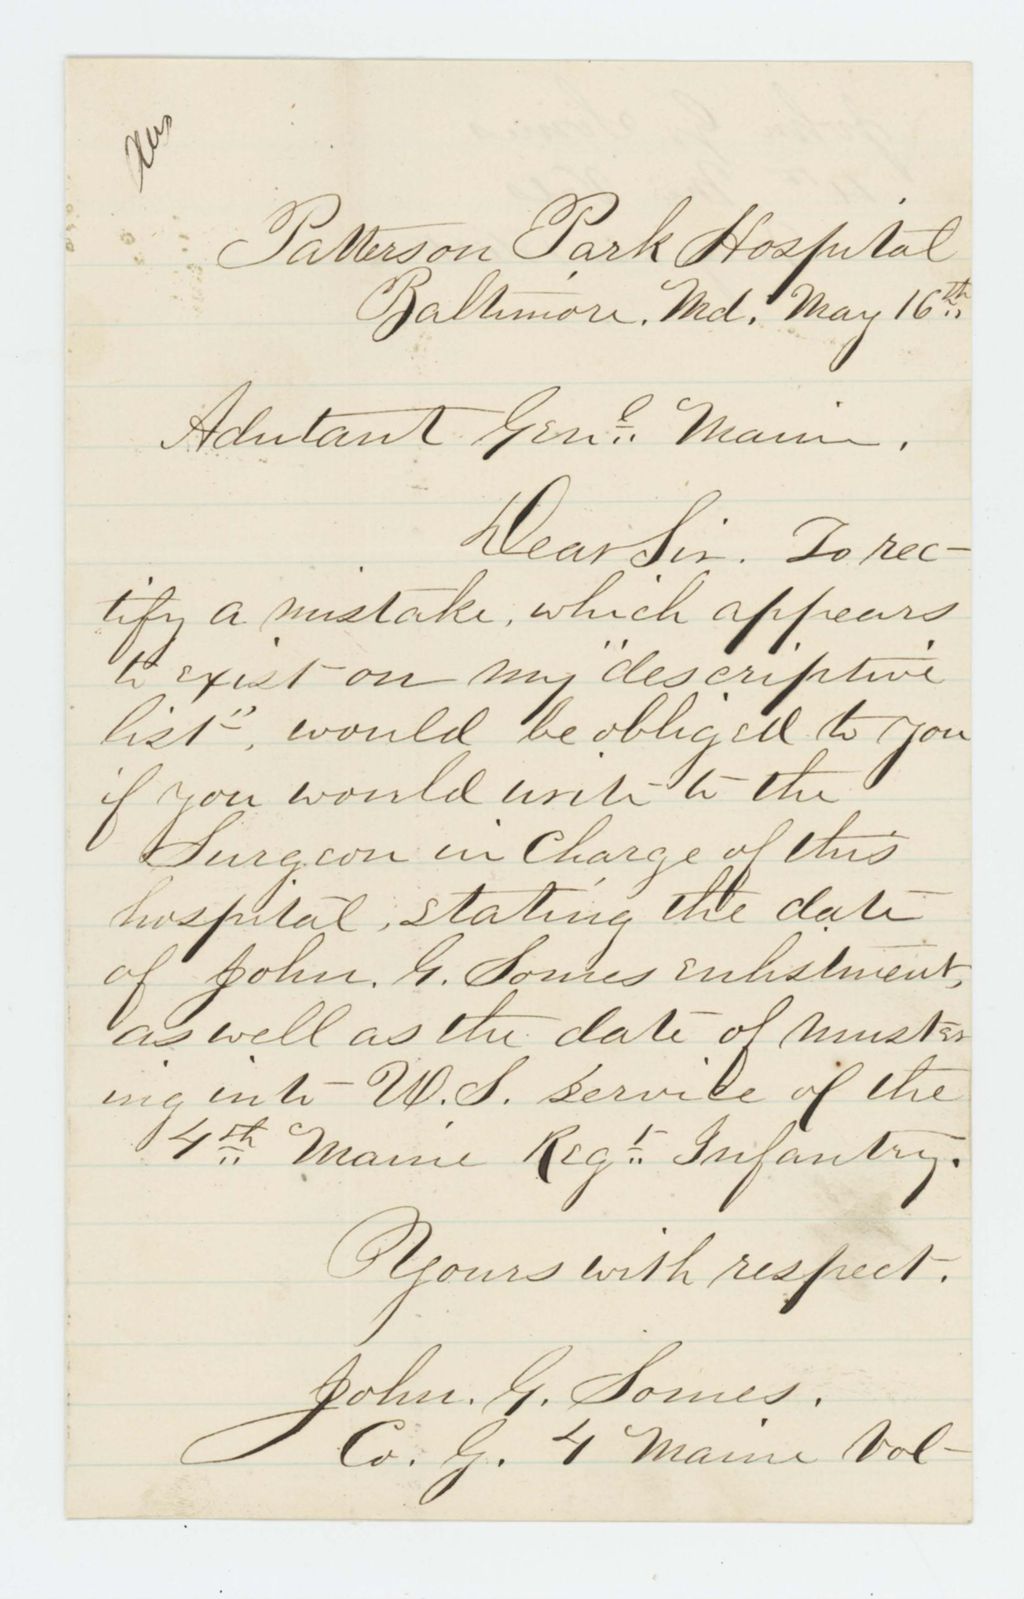 Patterson Park Hospital
Baltimore. Md. May 16th
Adutant Genl. Maine.
Dear Sir. To rec-
tify a mistake, which appears
to exist on my "descriptive
list", would be obliged to you
if you would write to the
Surgeon in Charge of this
hospital, stating the date
of John. G. Somes enlistment,
as well as the date of muster
ing into U.S. service of the
4th Maine Regt. Infantry.
Yours with respect.
John. G. Somes.
Co. G. 4 Maine Vol-